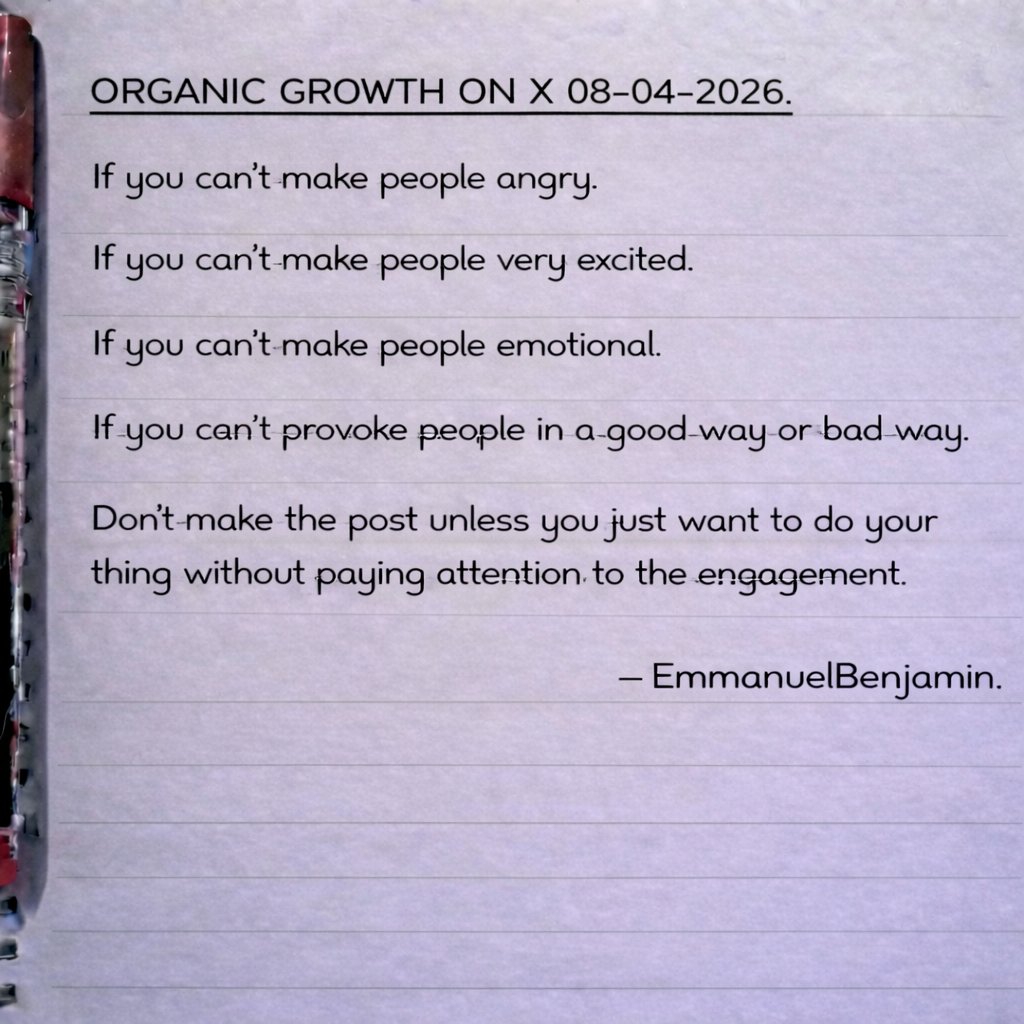 ORGANIC GROWTH ON X 08-04-2026.
If you can't make people angry.
If you can't make people very excited.
If you can't make people emotional.
If you can't provoke people in a good way or bad way.
Don't make the post unless you just want to do your
thing without paying attention to the engagement.
– EmmanuelBenjamin.